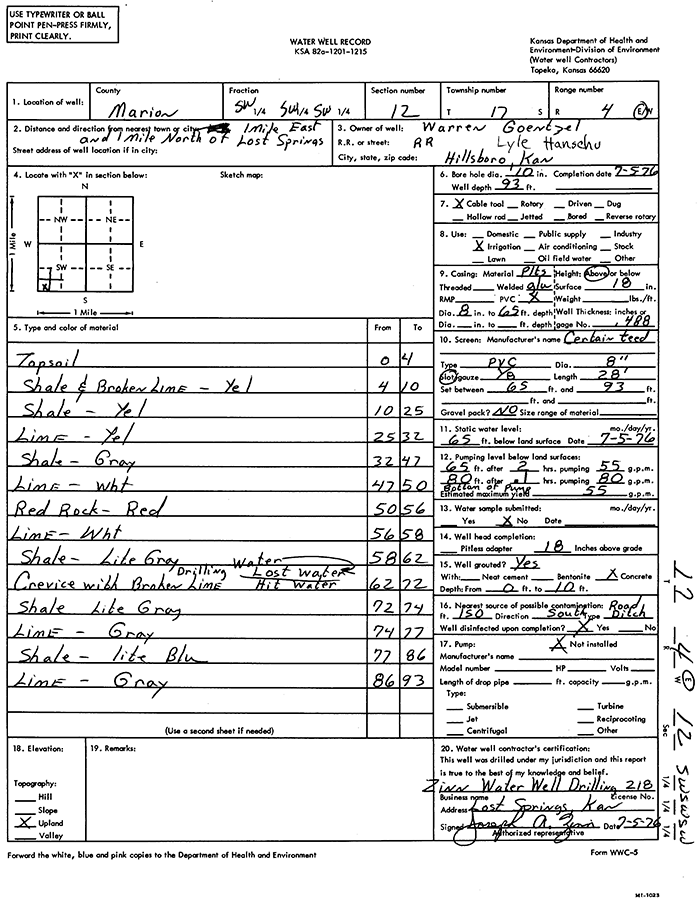 USE TYPEWRITER OR BALL
POINT PEN-PRESS FIRMLY,
PRINT CLEARLY.
WATER WELL RECORD
KSA 82a-1201-1215
Kansas Department of Health and
Environment-Division of Environment
(Water well Contractors)
Topeka, Kansas 66620
1. Location of well:
County
Marion
Fraction
SW 1/4 SW 1/4 SW 1/4
Section number
12
Township number
T 17 S
Range number
R 4 E/W
2. Distance and direction from nearest town or city: 1 Mile East
and 1 Mile North of Lost Springs
Street address of well location if in city:
3. Owner of well: Warren Goentzel
R.R. or street: RR Lyle Hanschu
City, state, zip code: Hillsboro, Kan
4. Locate with "X" in section below:
Sketch map:
N
NW NE
W E
SW SE
X
S
1 Mile
1 Mile
6. Bore hole dia. 10 in. Completion date 7-5-76
Well depth 93 ft.
7. X Cable tool Rotory Driven Dug
Hollow rod Jetted Bored Reverse rotary
8. Use: Domestic Public supply Industry
X Irrigation Air conditioning Stock
Lawn Oil field water Other
9. Casing: Material Plts Height: Above or below
Threaded Welded glu Surface 18 in.
RMP PVC X Weight lbs./ft.
Dia. 8 in. to 65 ft. depth Wall Thickness: inches or
Dia. in. to ft. depth gage No. .488
5. Type and color of material From To
Topsoil 0 4
Shale & Broken Lime - Yel 4 10
Shale - Yel 10 25
Lime - Yel 25 32
Shale - Gray 32 47
Lime - Wht 47 50
Red Rock - Red 50 56
Lime - Wht 56 58
Shale - Lite Gray 58 62
Drilling Water Lost Water
Crevice with Broken Lime Hit Water 62 72
Shale Lite Gray 72 74
Lime - Gray 74 77
Shale - lite Blu 77 86
Lime - Gray 86 93
(Use a second sheet if needed)
10. Screen: Manufacturer's name Certain teed
Type PVC Dia. 8"
Slot/gauze Length 28'
Set between 65 ft. and 93 ft.
ft. and ft.
Gravel pack? NO Size range of material
11. Static water level: mo./day/yr.
65 ft. below land surface Date 7-5-76
12. Pumping level below land surfaces:
65 ft. after 2 hrs. pumping 55 g.p.m.
80 ft. after 1 hrs. pumping 80 g.p.m.
Bottom of Pump
Estimated maximum yield 55 g.p.m.
13. Water sample submitted: mo./day/yr.
Yes X No Date
14. Well head completion:
Pitless adapter 18 Inches above grade
15. Well grouted? Yes
With: Neat cement Bentonite X Concrete
Depth: From 0 ft. to 10 ft.
16. Nearest source of possible contamination: Road
ft. 150 Direction South Type Ditch
Well disinfected upon completion? X Yes No
17. Pump: X Not installed
Manufacturer's name
Model number HP Volts
Length of drop pipe ft. capacity g.p.m.
Type:
Submersible Turbine
Jet Reciprocating
Centrifugal Other
18. Elevation:
Topography:
Hill
Slope
X Upland
Valley
19. Remarks:
20. Water well contractor's certification:
This well was drilled under my jurisdiction and this report
is true to the best of my knowledge and belief.
Zinn Water Well Drilling 218
Business name License No.
Address Lost Springs, Kan
Signed Joseph A. Zinn Date 7-5-76
Authorized representative
Forward the white, blue and pink copies to the Department of Health and Environment
Form WWC-5
T 17
R 4 E W
Sec 12
SW SW SW
1/4 1/4 1/4